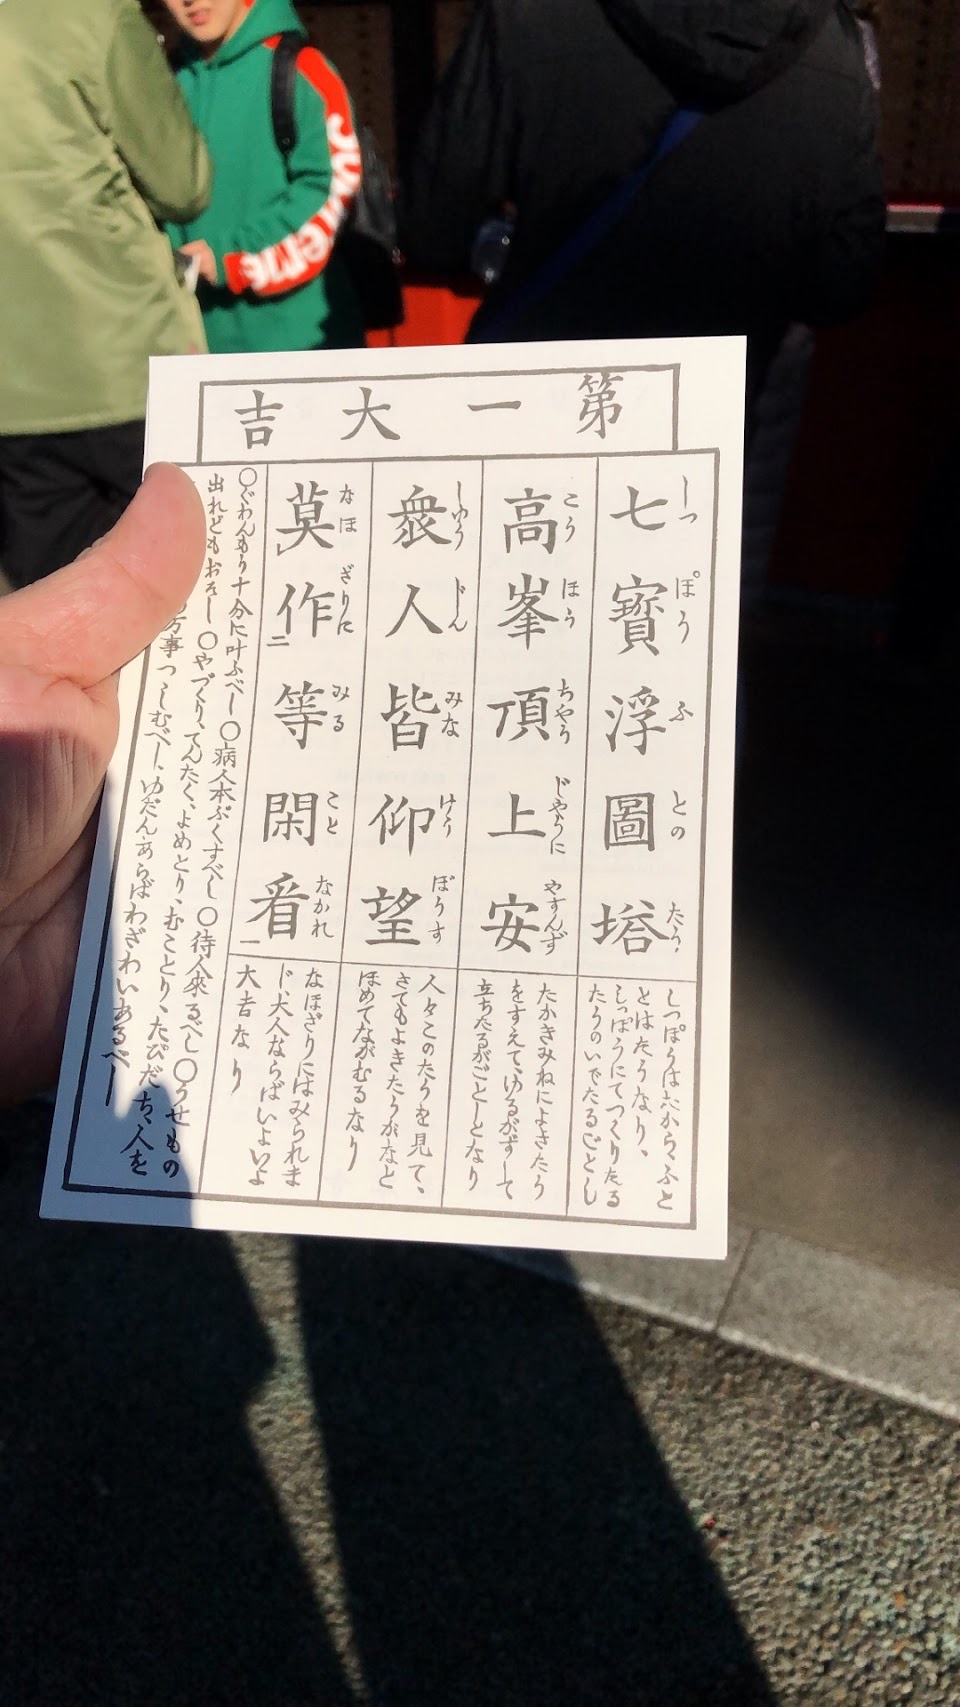 Supreme
第一大吉
七寳浮圖塔
しっぽうふとのたう
しっぽうはたから、ふと
とはたうなり、
しっぽうにてつくりたる
たうのいでたるごとし
高峯頂上安
こうほうちやうじやうにやすんず
たかきみねによきたう
をすえて、ゆるがずして
立ちたるがごとしとなり
衆人皆仰望
しゆうじんみなけうぼうす
人々このたうを見て、
さてもよきたうかなと
ほめてながむるなり
莫作二等閑看一
なほざりにみることなかれ
なほざりにはみられま
じ、大人ならばいよいよ
大吉なり
〇ぐわんもう十分に叶ふべし〇病人本ぷくすべし〇待人來るべし〇うせもの
出れどもおそし〇やづくり、てんたく、よめとり、むことり、たびだち、人を
万事つゝしむべし、ゆだんあらばわざわいあるべし